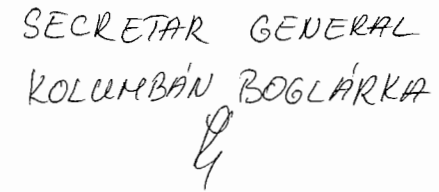 SECRETAR GENERAL
KOLUMBÁN BOGLÁRKA